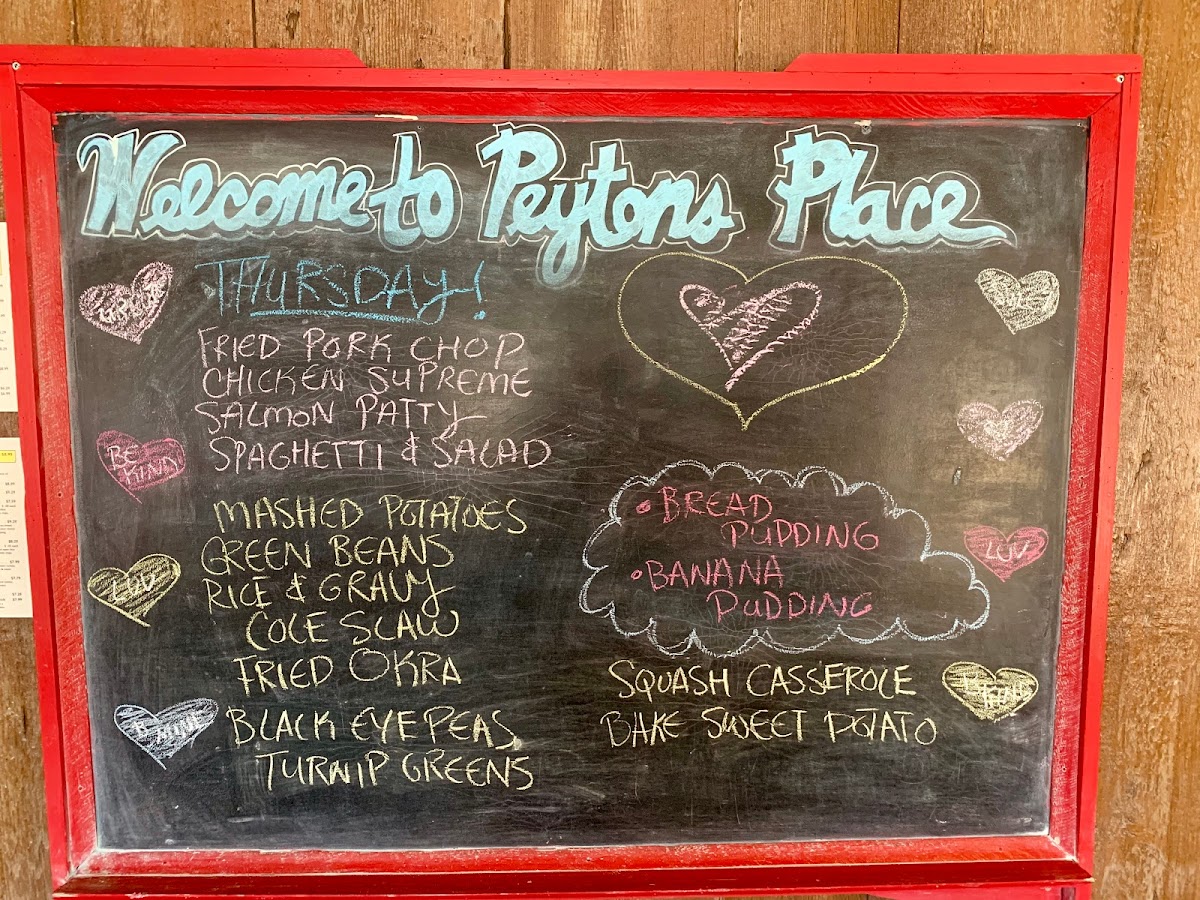 Welcome to Peytons Place
THURSDAY!
FRIED PORK CHOP
CHICKEN SUPREME
SALMON PATTY
SPAGHETTI & SALAD
BE
KIND
MASHED POTATOES
GREEN BEANS
RICE & GRAVY
COLE SLAW
FRIED OKRA
LUV
BLACK EYE PEAS
TURNIP GREENS
B
MINE
• BREAD
PUDDING
• BANANA
PUDDING
LUV
SQUASH CASSEROLE
BAKE SWEET POTATO